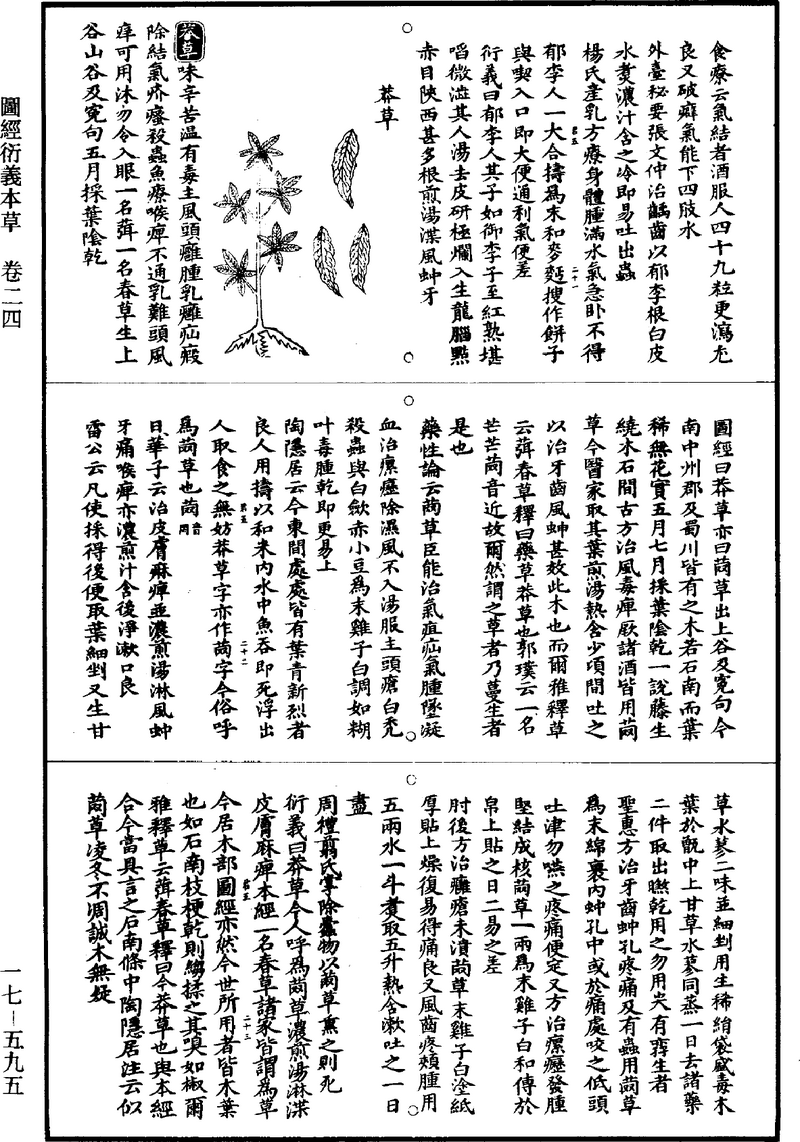 圖經衍義本草　卷二四
一七－五九五
食療云氣結者酒服人四十九粒更瀉尤
良又破癖氣能下四肢水
外臺秘要張文仲治齲齒以郁李根白皮
水煮濃汁含之冷即易吐出蟲
楊氏產乳方療身體腫滿水氣急卧不得
郁李人一大合擣爲末和麥麪搜作餅子
與喫入口即大便通利氣便差
衍義曰郁李人其子如御李子至紅熟堪
啗微澁其人湯去皮研極爛入生龍腦點
赤目陝西甚多根煎湯渫風蚛牙
莽草
莽草味辛苦温有毒主風頭癰腫乳癰疝瘕
除結氣疥瘙殺蟲魚療喉痺不通乳難頭風
痒可用沐勿令入眼一名葞一名春草生上
谷山谷及寃句五月採葉陰乾
圖經曰莽草亦曰䒽草出上谷及寃句今
南中州郡及蜀川皆有之木若石南而葉
稀無花實五月七月採葉陰乾一說藤生
繞木石間古方治風毒痺厥諸酒皆用䒽
草今醫家取其葉煎湯熱含少頃間吐之
以治牙齒風蚛甚效此木也而爾雅釋草
云葞春草釋曰藥草莽草也郭璞云一名
芒芒䒽音近故爾然謂之草者乃蔓生者
是也
藥性論云䒽草臣能治氣疽疝氣腫墜凝
血治瘰癧除濕風不入湯服主頭瘡白禿
殺蟲與白歛赤小豆爲末雞子白調如糊
叶毒腫乾即更易上
陶隱居云今東間處處皆有葉青新烈者
良人用擣以和米內水中魚吞即死浮出
人取食之無妨莽草字亦作䒽字今俗呼
爲䒽草也䒽音罔
日華子云治皮膚麻痺並濃煎湯淋風蚛
牙痛喉痺亦濃煎汁含後淨漱口良
雷公云凡使採得後便取葉細剉又生甘
草水蓼二味並細剉用生稀絹袋盛毒木
葉於甑中上甘草水蓼同蒸一日去諸藥
二件取出㬠乾用之勿用尖有孿生者
聖惠方治牙齒蚛孔疼痛及有蟲用䒽草
爲末綿裹內蚛孔中或於痛處咬之低頭
吐津勿嚥之疼痛便定又方治瘰癧發腫
堅結成核䒽草一兩爲末雞子白和傅於
帛上貼之日二易之差
肘後方治癰瘡未潰䒽草末雞子白塗紙
厚貼上燥復易得痛良又風齒疼頰腫用
五兩水一斗煮取五升熱含漱吐之一日
盡
周禮翦氏掌除蠹物以䒽草熏之則死
衍義曰莽草今人呼爲䒽草濃煎湯淋渫
皮膚麻痺本經一名春草諸家皆謂爲草
今居木部圖經亦然今世所用者皆木葉
也如石南枝梗乾則縐揉之其嗅如椒爾
雅釋草云葞春草釋曰今莽草也與本經
合今當具言之石南條中陶隱居注云似
䒽草凌冬不凋誠木無疑